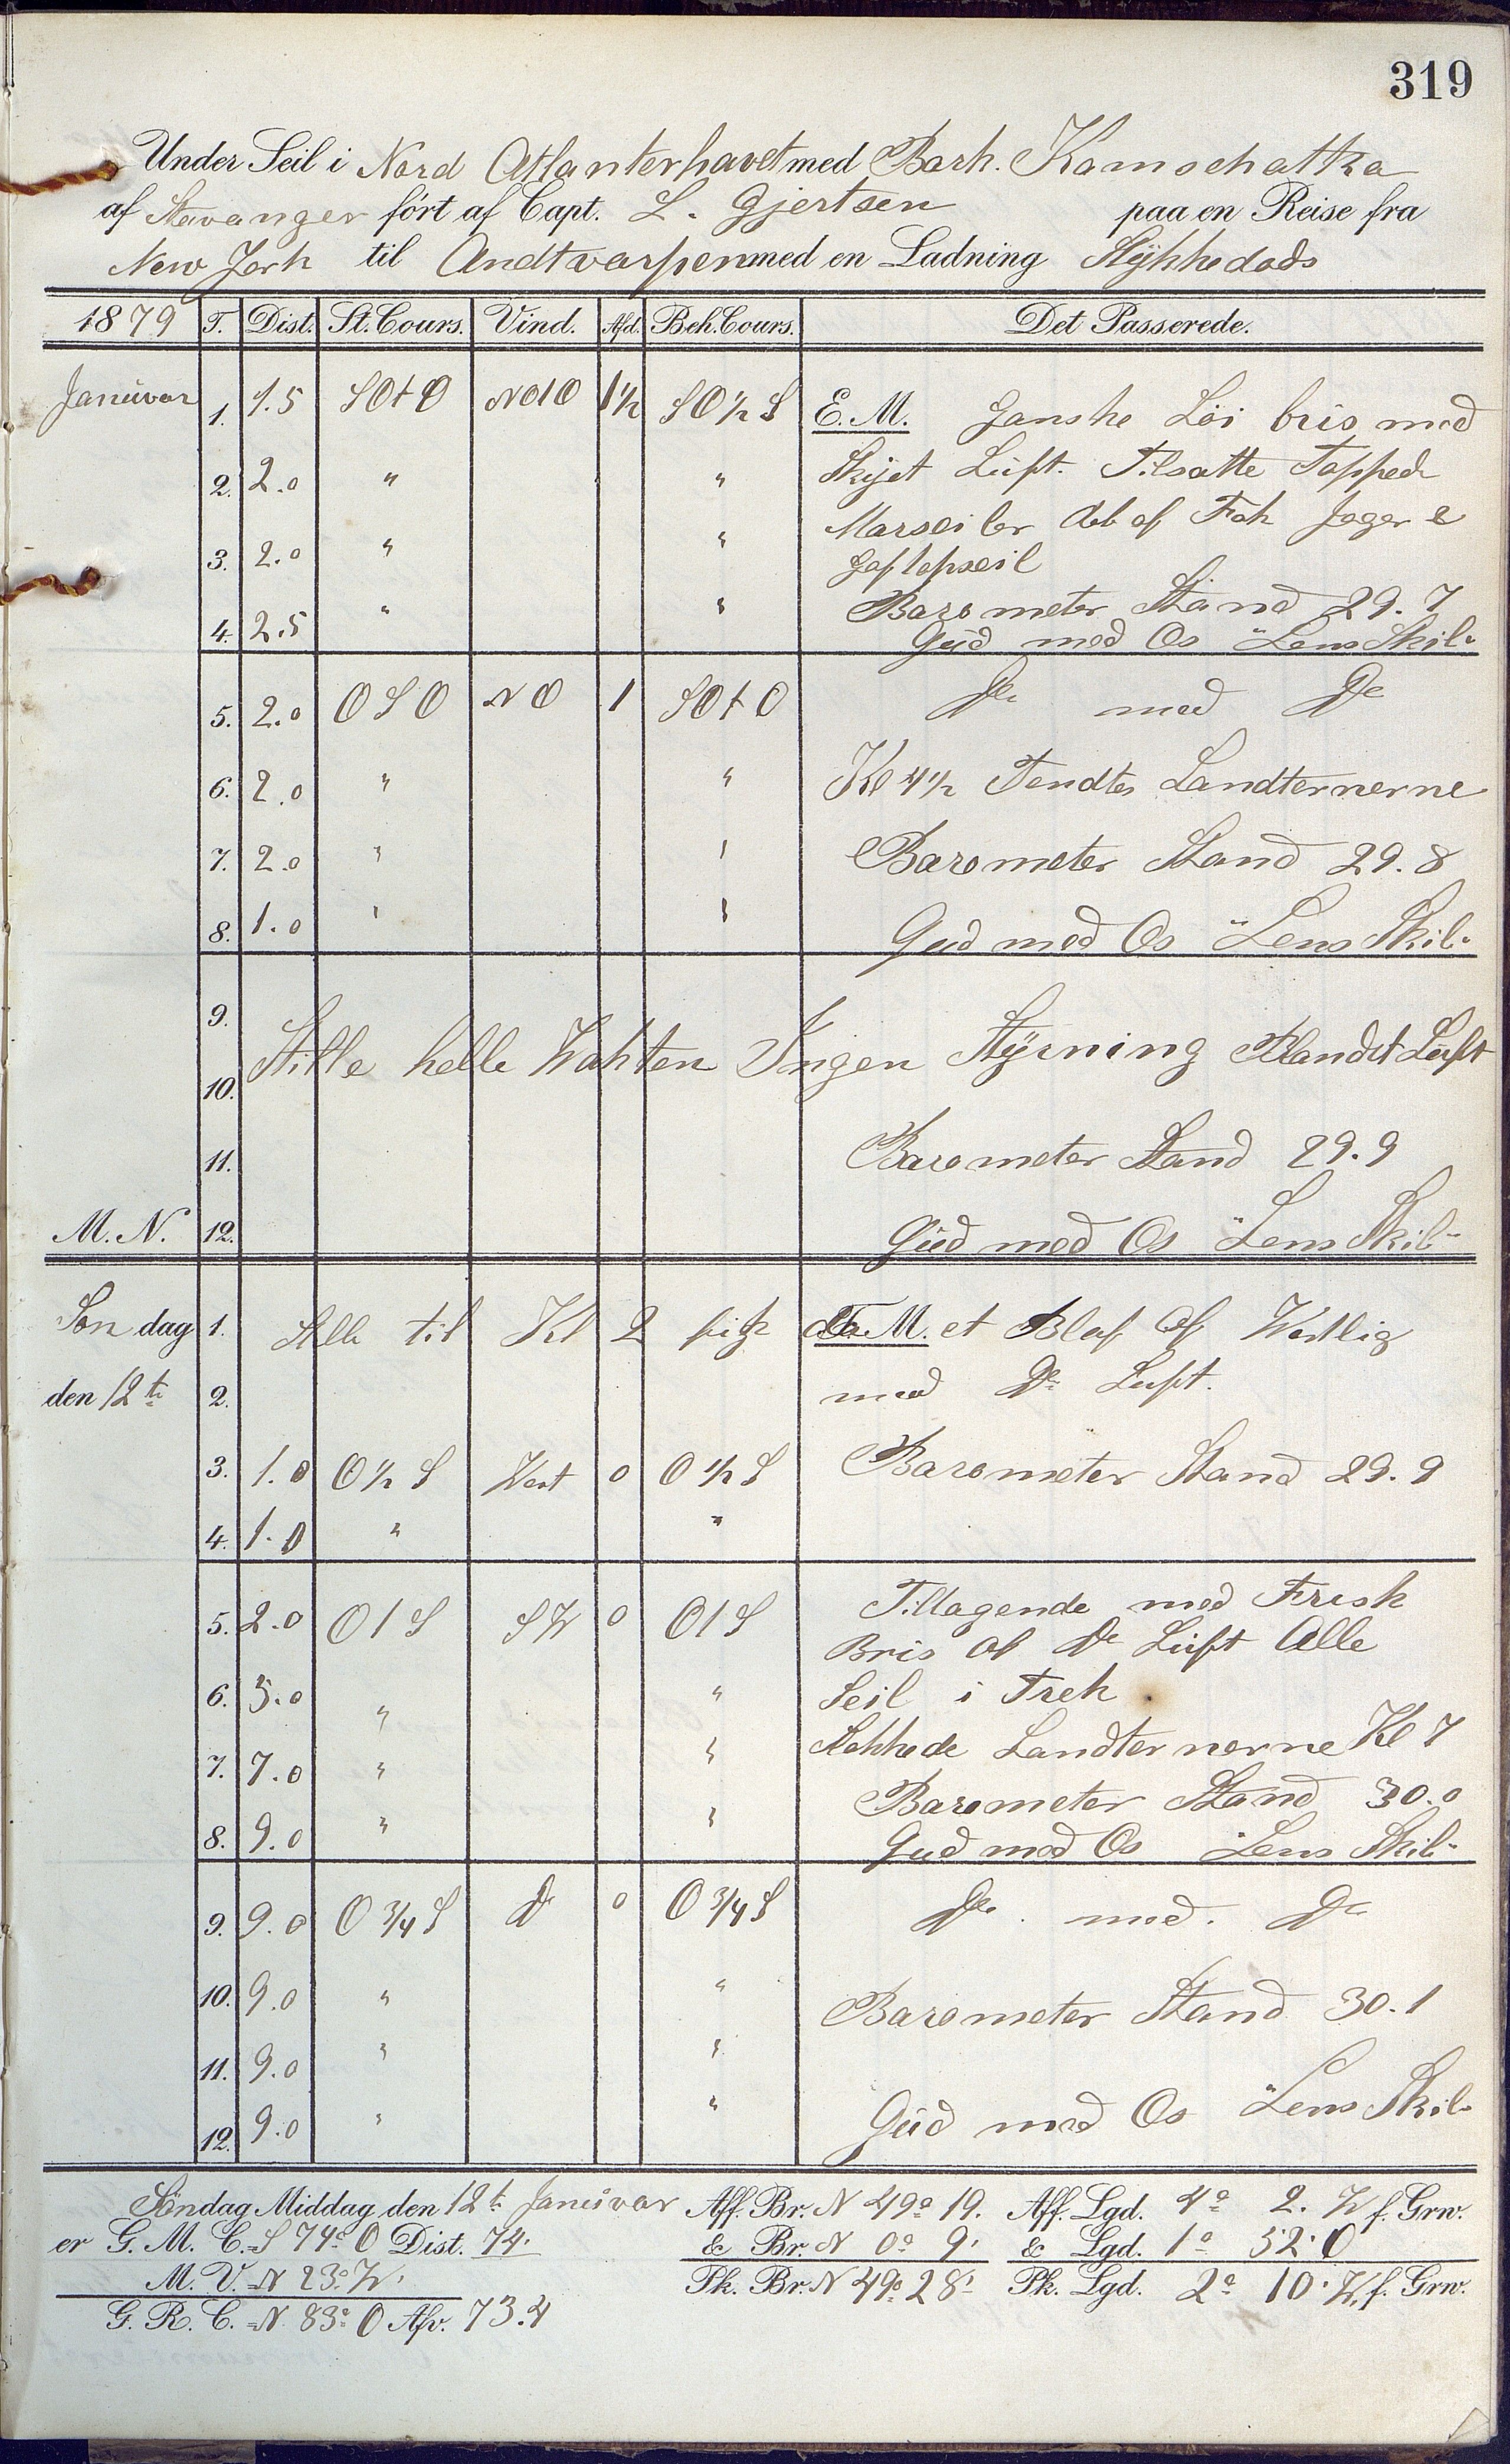 319
Under Seil i Nord Atlanterhavet med Bark. Kamschatka
af Stavanger ført af Capt. L. Gjertsen paa en Reise fra
New Jork til Andtvarpen med en Ladning Stÿkkedods
1879 T. Dist. St. Cours. Vind. Afd. Beh. Cours. Det Passerede.
Januvar 1. 1.5 SOtO NOtO 1½ SO½S E. M. Ganske Löi bris med
2. 2.0 " " Skÿet Luft. Tilsatte Topped
Marseiler Aab af Fok Jager &
3. 2.0 " " Gaftopseil
Barometer Stand 29.7
4. 2.5 " " Gud med Os "Lens Skib"
5. 2.0 OSO NO 1 SOtO Do med Do
6. 2.0 " " Kl 4½ Tendtes Landternerne
7. 2.0 " " Barometer Stand 29.8
8. 1.0 " " Gud med Os "Lens Skib"
9.
Stille helle Wakten Ingen Styrning Blandet Luft
10.
11. Barometer Stand 29.9
M. N. 12. Gud med Os "Lens Skib"
Søndag 1. Stille til Kl 2 fik F. M. et Blaf Af Westlig
den 12te 2. med Do Luft.
3. 1.0 O½S West 0 O½S Barometer Stand 29.9
4. 1.0 " "
5. 2.0 OtS SW 0 OtS Tiltagende med Frisk
Bris Do Luft Alle
6. 5.0 " " Seil i Trek
7. 7.0 " " Slekkede Landternerne Kl 7
Barometer Stand 30.0
8. 9.0 " " Gud med Os "Lens Skib"
9. 9.0 O¾S Do 0 O¾S Do. med. Do
10. 9.0 " " Barometer Stand 30.1
11. 9.0 " "
12. 9.0 " " Gud med Os "Lens Skib"
Søndag Middag den 12te Januvar Aff. Br. N 49° 19. Aff. Lgd. 4° 2. W f. Grw.
er G. M. C. = S 74° O Dist. 74. & Br. N 0° 9' & Lgd. 1° 52' O
M. V. = N 23° W. Pk. Br. N 49° 28' Pk. Lgd. 2° 10' W. f. Grw.
G. R. C. = N 83° O Afv. 73.4